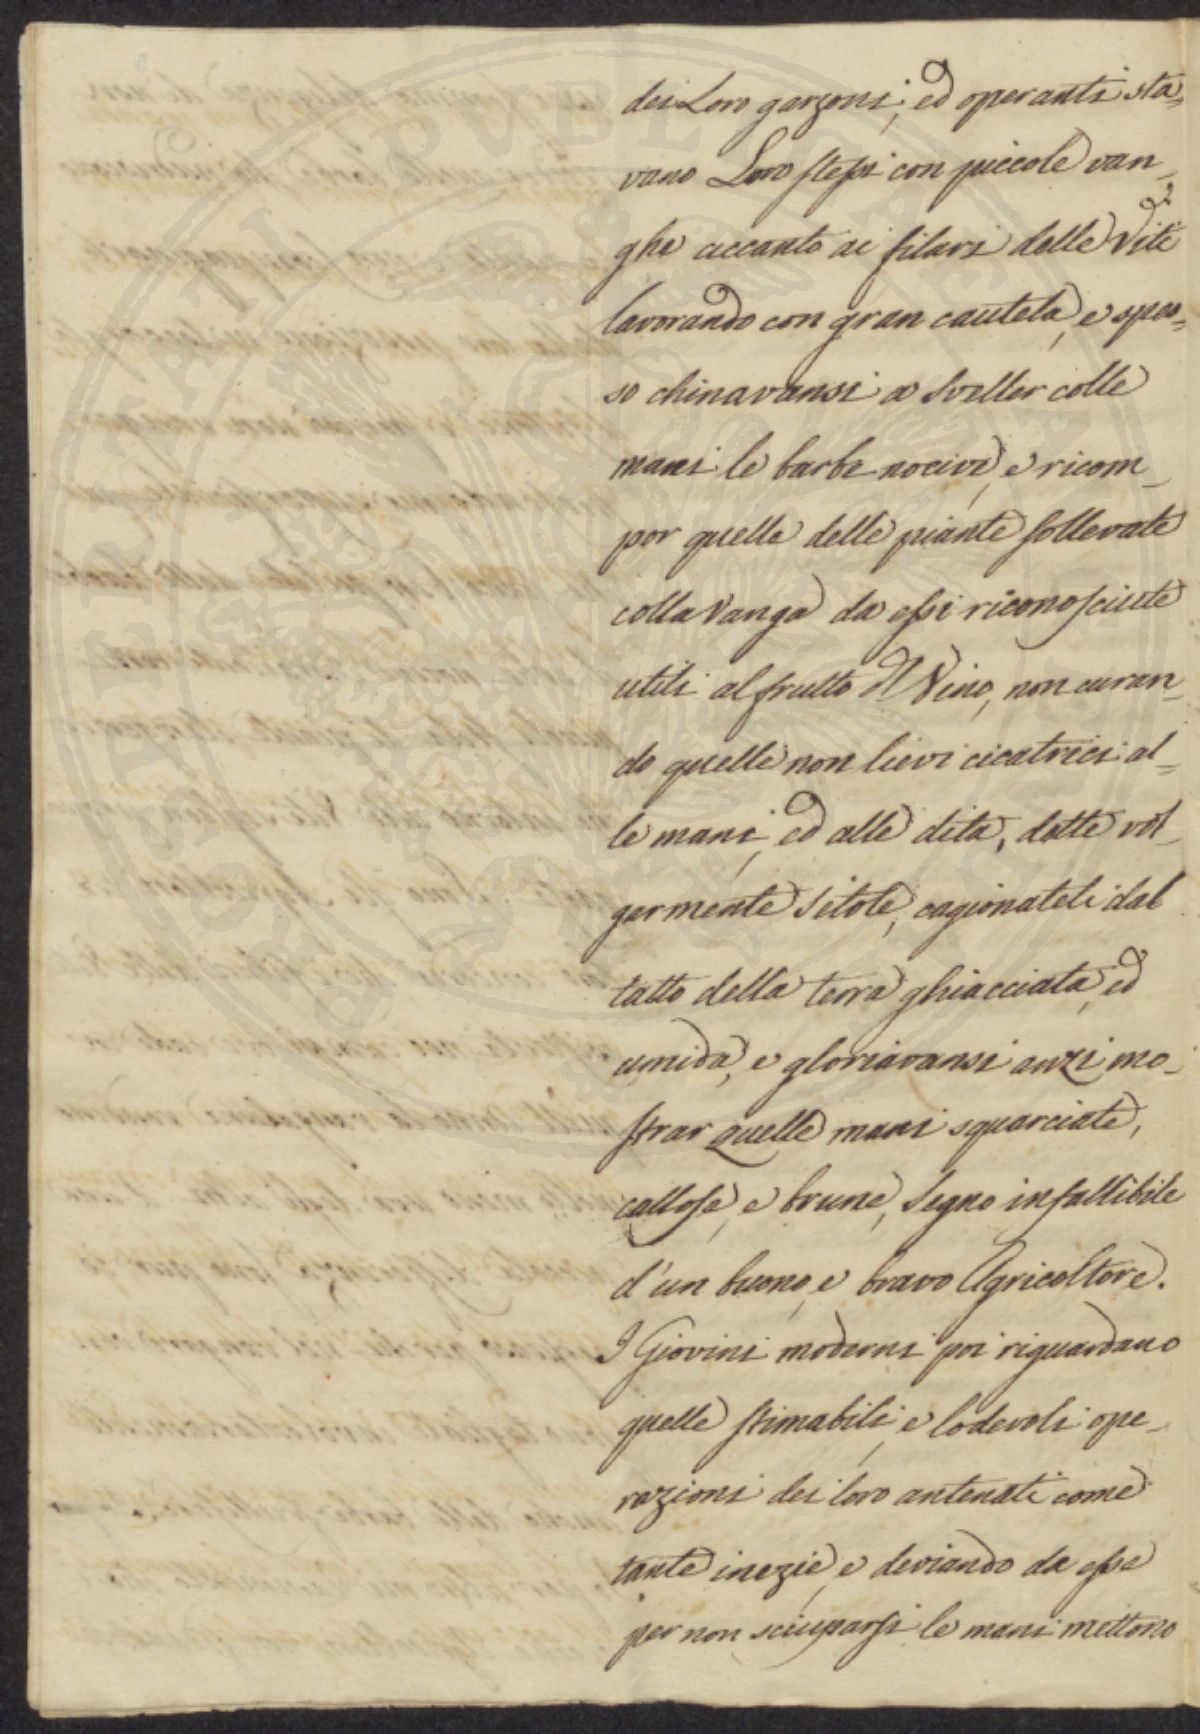 dei Loro garzoni, ed operanti sta=
vano Loro stessi con piccole van_
ghe accanto ai filari delle Viti
lavorando con gran cautela, e spes=
so chinavansi a sveller colle
mani le barbe nocive, e ricom_
por quelle delle piante sollevate
colla Vanga da essi riconosciute
utili al frutto del Vino, non curan_
do quelle non lievi cicatrici al=
le mani, ed alle dita, dette vol_
germente Sitole, cagionateli dal
tatto della terra ghiacciata, ed
umida, e gloriavansi anzi mo_
strar quelle mani squarciate,
callose, e brune, Segno infallibile
d'un buono, e bravo Agricoltore.
I Giovini moderni poi riguardano
quelle stimabili, e lodevoli ope_
razioni dei loro antenati come
tante inezie, e deviando da esse
per non sciuparsi le mani mettono